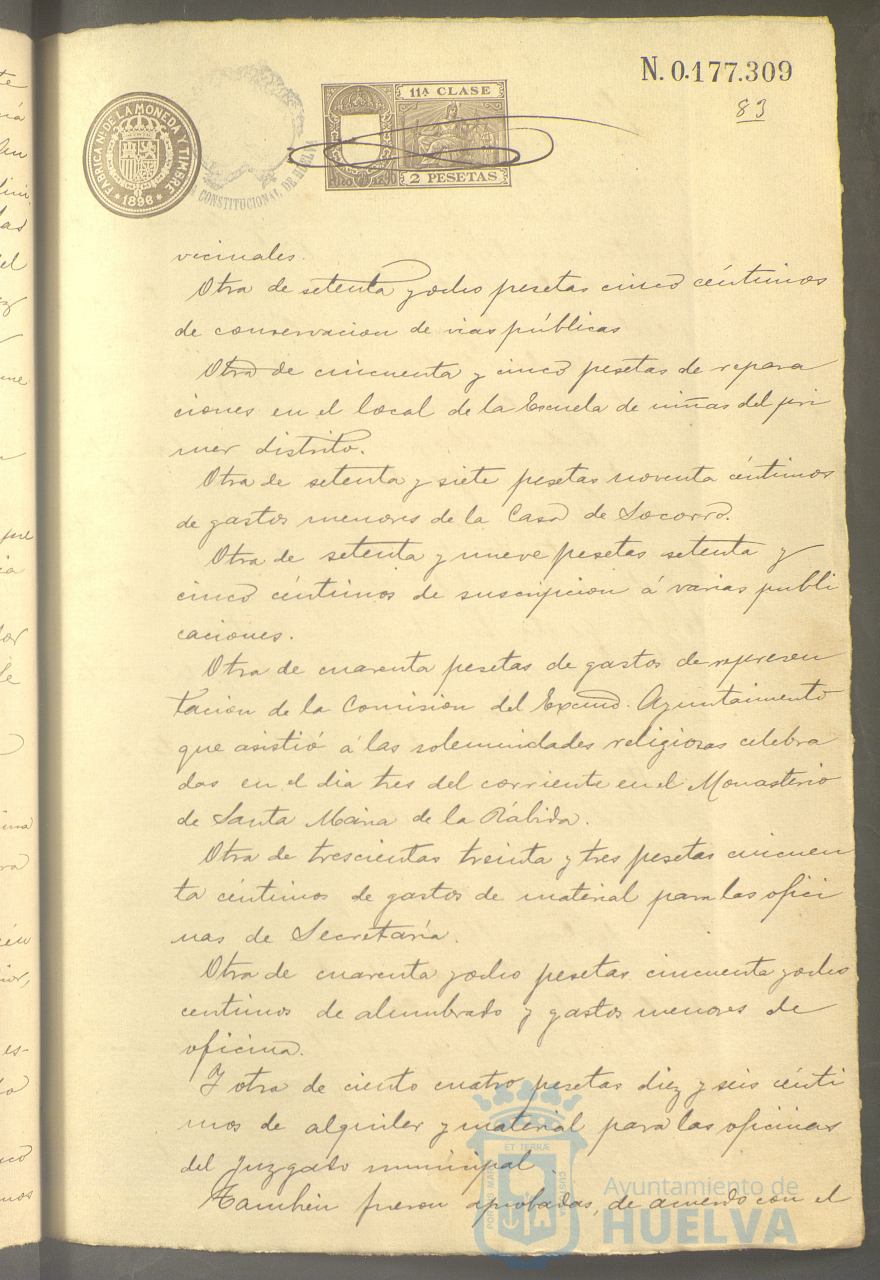 N. 0.177.309
83
FABRICA NAL DE LA MONEDA Y TIMBRE
* 1896 *
CONSTITUCIONAL DE HUELVA
11ª CLASE
2 PESETAS
vecinales.
Otra de setenta y ocho pesetas cinco céntimos
de conservacion de vias públicas
Otra de cincuenta y cinco pesetas de repara
ciones en el local de la Escuela de niñas del pri
mer distrito.
Otra de setenta y siete pesetas noventa céntimos
de gastos menores de la Casa de Socorro.
Otra de setenta y nueve pesetas setenta y
cinco céntimos de suscripcion á varias publi
caciones.
Otra de cuarenta pesetas de gastos de represen
tacion de la Comision del Excmo. Ayuntamiento
que asistió á las solemnidades religiosas celebra
das en el dia tres del corriente en el Monasterio
de Santa Maria de la Rábida.
Otra de trescientas treinta y tres pesetas cincuen
ta céntimos de gastos de material para las ofici
nas de Secretaría.
Otra de cuarenta y ocho pesetas cincuenta y ocho
centimos de alumbrado y gastos menores de
oficina.
Y otra de ciento cuatro pesetas diez y seis cénti
mos de alquiler y material para las oficinas
del Juzgado municipal.
Tambien fueron aprobadas, de acuerdo con el
PORTUS MARIS ET TERRÆ CUSTODIA
Ayuntamiento de
HUELVA